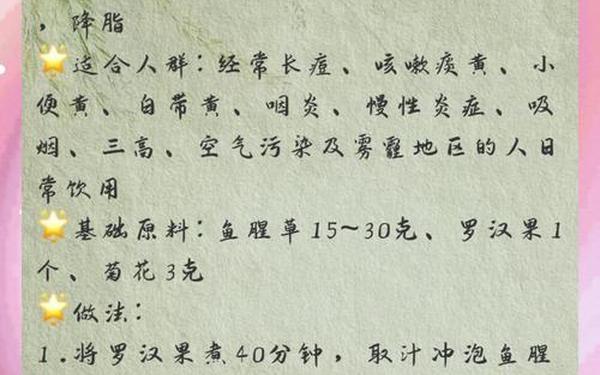 ，降脂
适合人群：经常长痘、咳嗽痰黄、小
便黄、白带黄、咽炎、慢性炎症、吸
烟、三高、空气污染及雾霾地区的人日
常饮用
基础原料：鱼腥草15~30克、罗汉果1
个、菊花3克
做法：
1.将罗汉果煮40分钟，取汁冲泡鱼腥